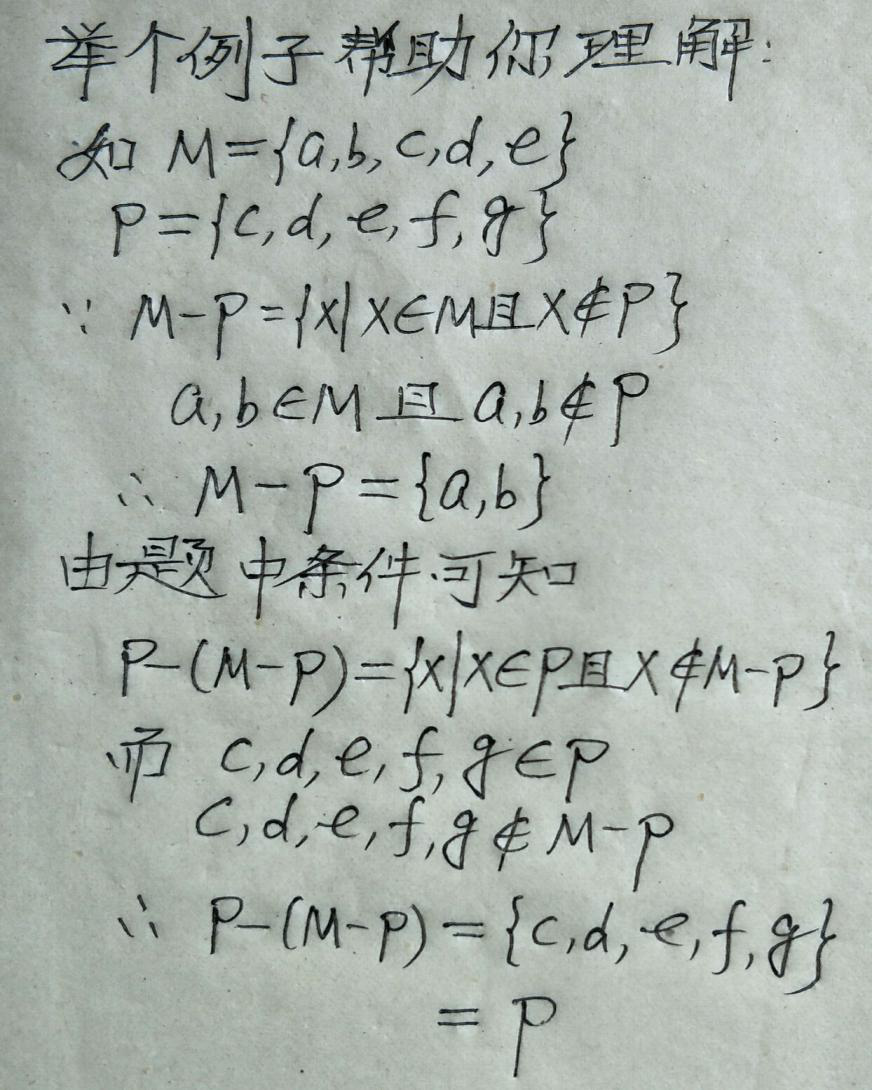 举个例子帮助你理解:
如 M={a,b,c,d,e}
P={c,d,e,f,g}
∵ M-P={x|x∈M且x∉P}
a,b∈M且a,b∉P
∴ M-P={a,b}
由题中条件可知
P-(M-P)={x|x∈P且x∉M-P}
而 c,d,e,f,g∈P
c,d,e,f,g∉M-P
∴ P-(M-P)={c,d,e,f,g}
=P